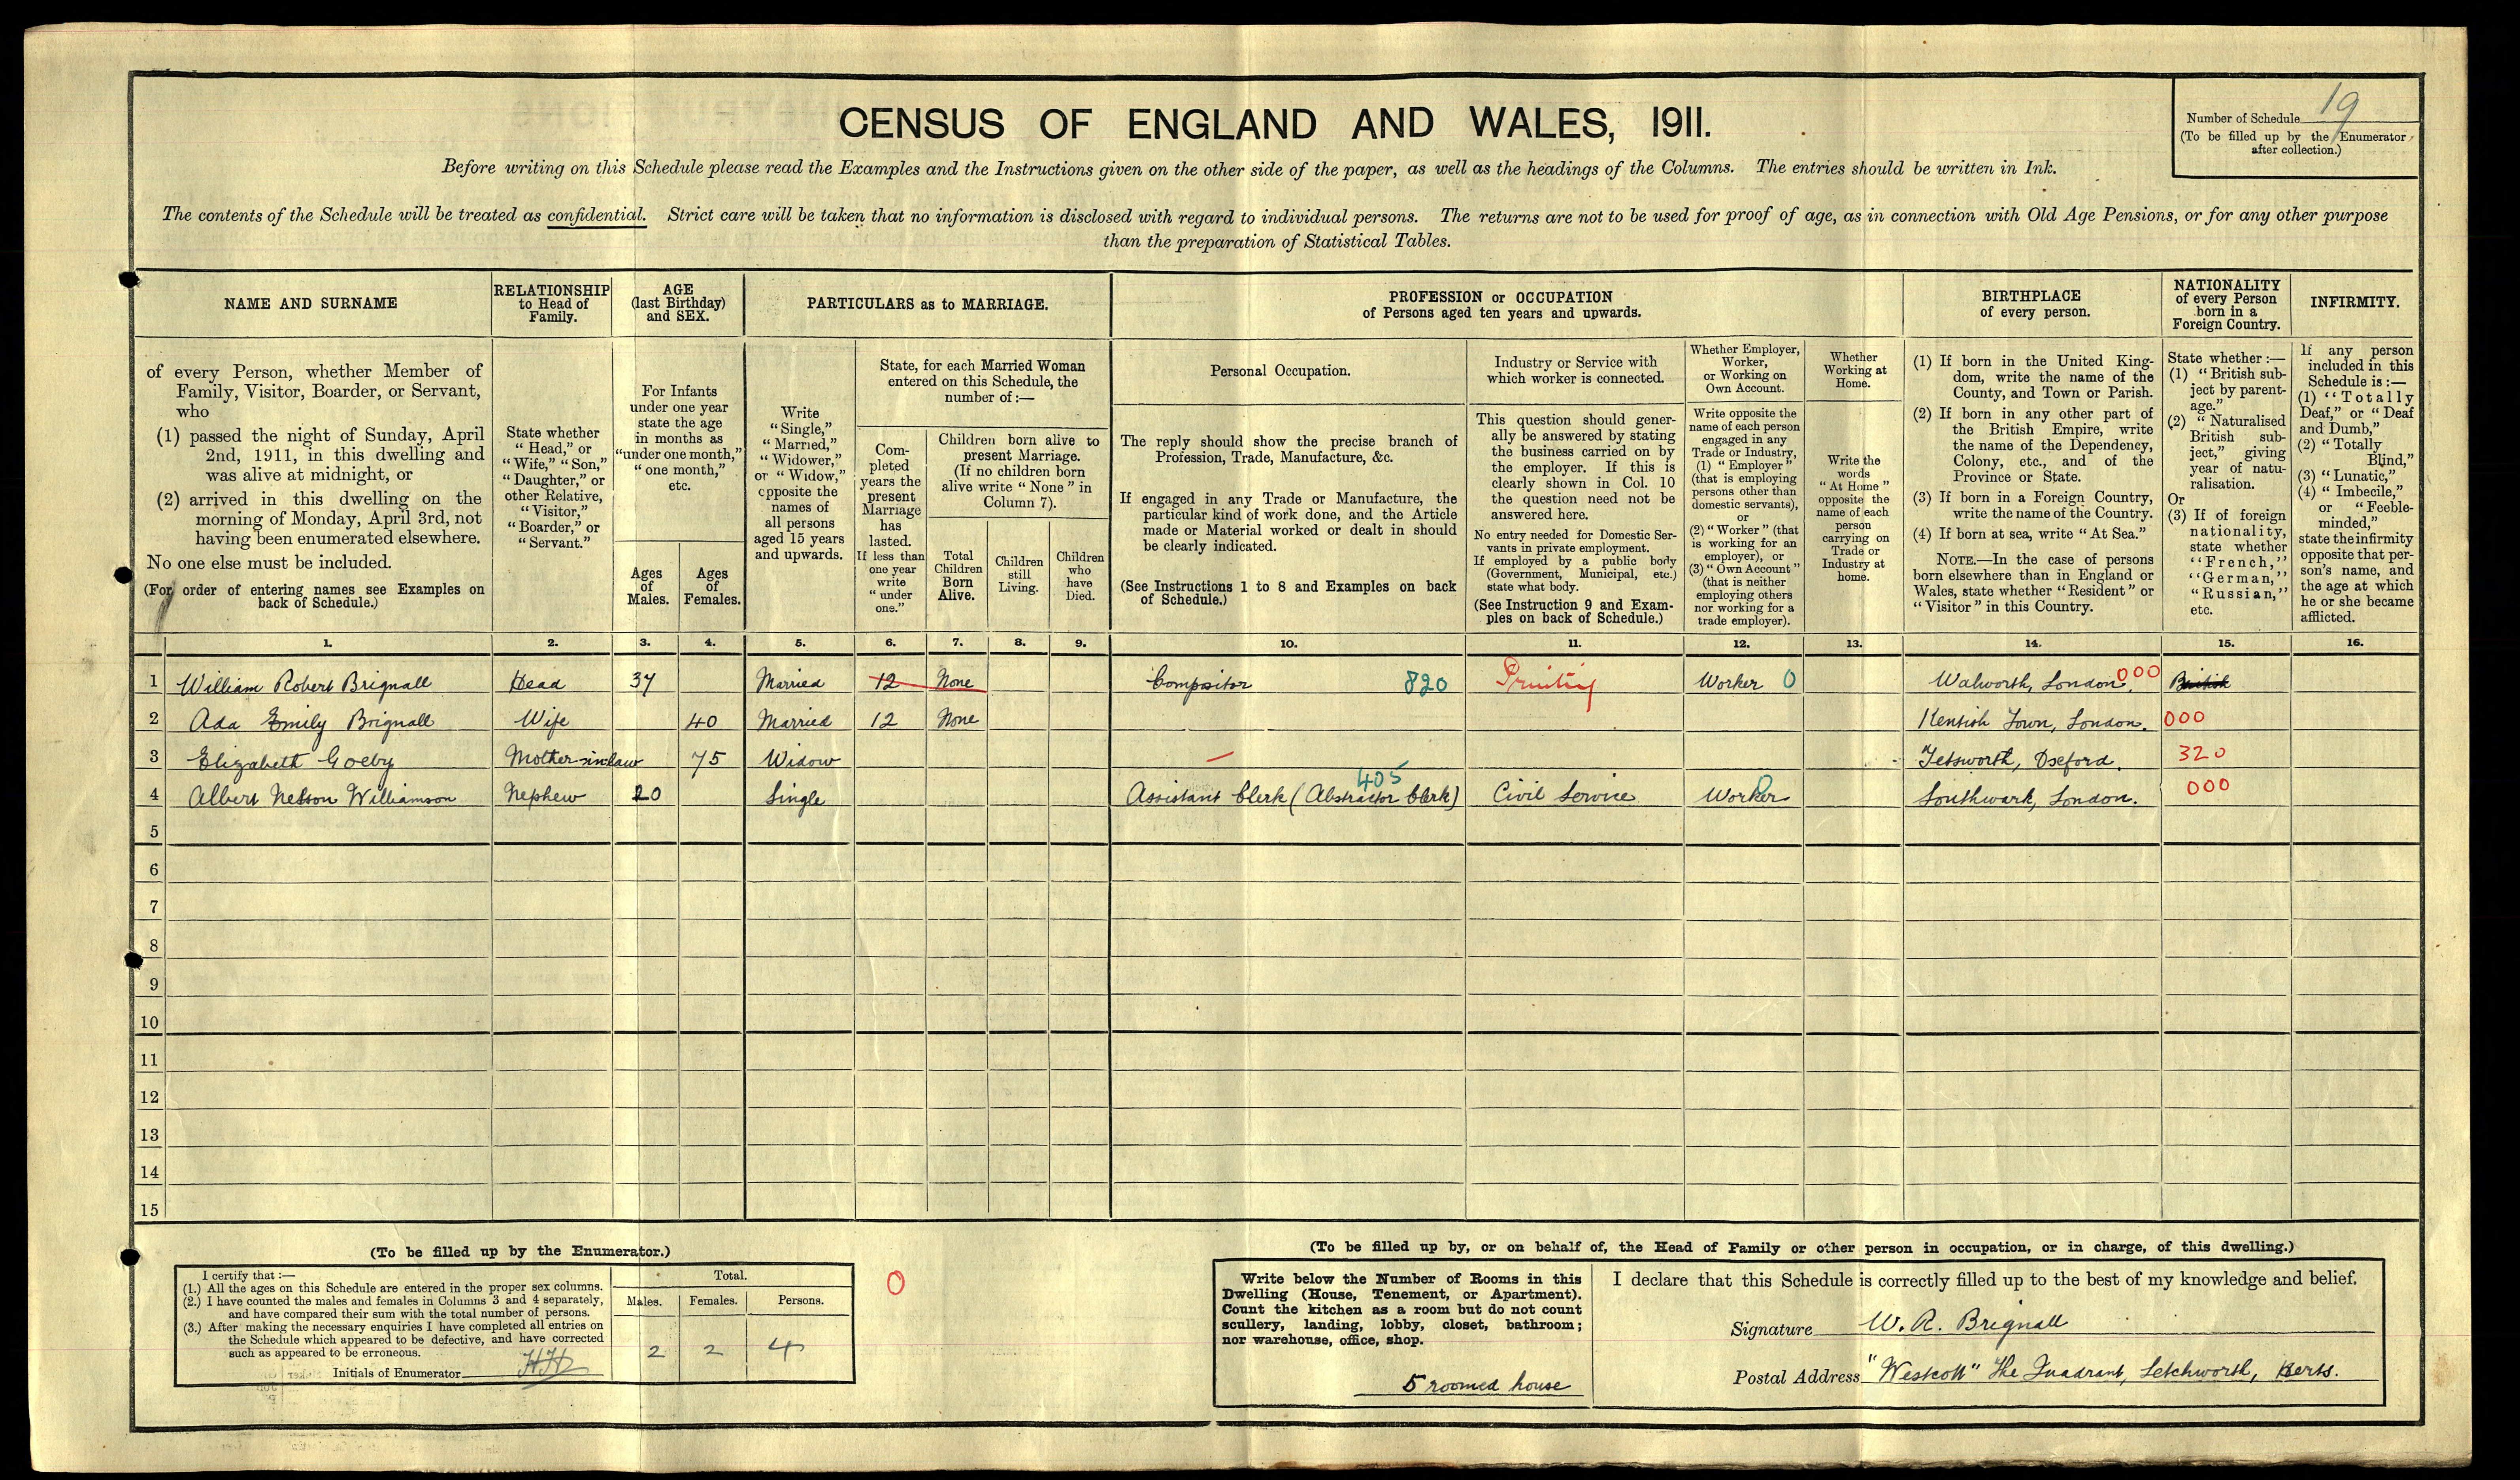 CENSUS OF ENGLAND AND WALES, 1911.
Number of Schedule 19
(To be filled up by the Enumerator
after collection.)
Before writing on this Schedule please read the Examples and the Instructions given on the other side of the paper, as well as the headings of the Columns. The entries should be written in Ink.
The contents of the Schedule will be treated as confidential. Strict care will be taken that no information is disclosed with regard to individual persons. The returns are not to be used for proof of age, as in connection with Old Age Pensions, or for any other purpose
than the preparation of Statistical Tables.
NAME AND SURNAME
of every Person, whether Member of
Family, Visitor, Boarder, or Servant,
who
(1) passed the night of Sunday, April
2nd, 1911, in this dwelling and
was alive at midnight, or
(2) arrived in this dwelling on the
morning of Monday, April 3rd, not
having been enumerated elsewhere.
No one else must be included.
(For order of entering names see Examples on
back of Schedule.)
RELATIONSHIP
to Head of
Family.
State whether
"Head," or
"Wife," "Son,"
"Daughter," or
other Relative,
"Visitor,"
"Boarder," or
"Servant."
AGE
(last Birthday)
and SEX.
For Infants
under one year
state the age
in months as
"under one month,"
"one month,"
etc.
Ages
of
Males.
Ages
of
Females.
PARTICULARS as to MARRIAGE.
Write
"Single,"
"Married,"
"Widower,"
or "Widow,"
opposite the
names of
all persons
aged 15 years
and upwards.
State, for each Married Woman
entered on this Schedule, the
number of :—
Com-
pleted
years the
present
Marriage
has
lasted.
If less than
one year
write
"under
one."
Children born alive to
present Marriage.
(If no children born
alive write "None" in
Column 7).
Total
Children
Born
Alive.
Children
still
Living.
Children
who
have
Died.
PROFESSION or OCCUPATION
of Persons aged ten years and upwards.
Personal Occupation.
The reply should show the precise branch of
Profession, Trade, Manufacture, &c.
If engaged in any Trade or Manufacture, the
particular kind of work done, and the Article
made or Material worked or dealt in should
be clearly indicated.
(See Instructions 1 to 8 and Examples on back
of Schedule.)
Industry or Service with
which worker is connected.
This question should gener-
ally be answered by stating
the business carried on by
the employer. If this is
clearly shown in Col. 10
the question need not be
answered here.
No entry needed for Domestic Ser-
vants in private employment.
If employed by a public body
(Government, Municipal, etc.)
state what body.
(See Instruction 9 and Exam-
ples on back of Schedule.)
Whether Employer,
Worker,
or Working on
Own Account.
Write opposite the
name of each person
engaged in any
Trade or Industry,
(1) "Employer"
(that is employing
persons other than
domestic servants),
or
(2) "Worker" (that
is working for an
employer), or
(3) "Own Account"
(that is neither
employing others
nor working for a
trade employer).
Whether
Working at
Home.
Write the
words
"At Home"
opposite the
name of each
person
carrying on
Trade or
Industry at
home.
BIRTHPLACE
of every person.
(1) If born in the United King-
dom, write the name of the
County, and Town or Parish.
(2) If born in any other part of
the British Empire, write
the name of the Dependency,
Colony, etc., and of the
Province or State.
(3) If born in a Foreign Country,
write the name of the Country.
(4) If born at sea, write "At Sea."
NOTE.—In the case of persons
born elsewhere than in England or
Wales, state whether "Resident" or
"Visitor" in this Country.
NATIONALITY
of every Person
born in a
Foreign Country.
State whether :—
(1) "British sub-
ject by parent-
age."
(2) "Naturalised
British sub-
ject," giving
year of natu-
ralisation.
Or
(3) If of foreign
nationality,
state whether
"French,"
"German,"
"Russian,"
etc.
INFIRMITY.
If any person
included in this
Schedule is :—
(1) "Totally
Deaf," or "Deaf
and Dumb,"
(2) "Totally
Blind,"
(3) "Lunatic,"
(4) "Imbecile,"
or "Feeble-
minded,"
state the infirmity
opposite that per-
son's name, and
the age at which
he or she became
afflicted.
1. 2. 3. 4. 5. 6. 7. 8. 9. 10. 11. 12. 13. 14. 15. 16.
1 William Robert Brignall Head 37 Married 12 None Compositor 820 Printing Worker 0 Walworth, London. 000 British
2 Ada Emily Brignall Wife 40 Married 12 None Kentish Town, London. 000
3 Elizabeth Goeby Mother-in-law 75 Widow — Tetsworth, Oxford. 320
4 Albert Nelson Williamson Nephew 20 Single Assistant Clerk (Abstractor Clerk) 405 Civil Service Worker Southwark, London. 000
5
6
7
8
9
10
11
12
13
14
15
(To be filled up by the Enumerator.)
I certify that :—
(1.) All the ages on this Schedule are entered in the proper sex columns.
(2.) I have counted the males and females in Columns 3 and 4 separately,
and have compared their sum with the total number of persons.
(3.) After making the necessary enquiries I have completed all entries on
the Schedule which appeared to be defective, and have corrected
such as appeared to be erroneous.
Initials of Enumerator
Total.
Males. Females. Persons.
2 2 4
0
(To be filled up by, or on behalf of, the Head of Family or other person in occupation, or in charge, of this dwelling.)
Write below the Number of Rooms in this
Dwelling (House, Tenement, or Apartment).
Count the kitchen as a room but do not count
scullery, landing, lobby, closet, bathroom;
nor warehouse, office, shop.
5 roomed house
I declare that this Schedule is correctly filled up to the best of my knowledge and belief.
Signature W. R. Brignall
Postal Address "Westcott" The Quadrant, Letchworth, Herts.